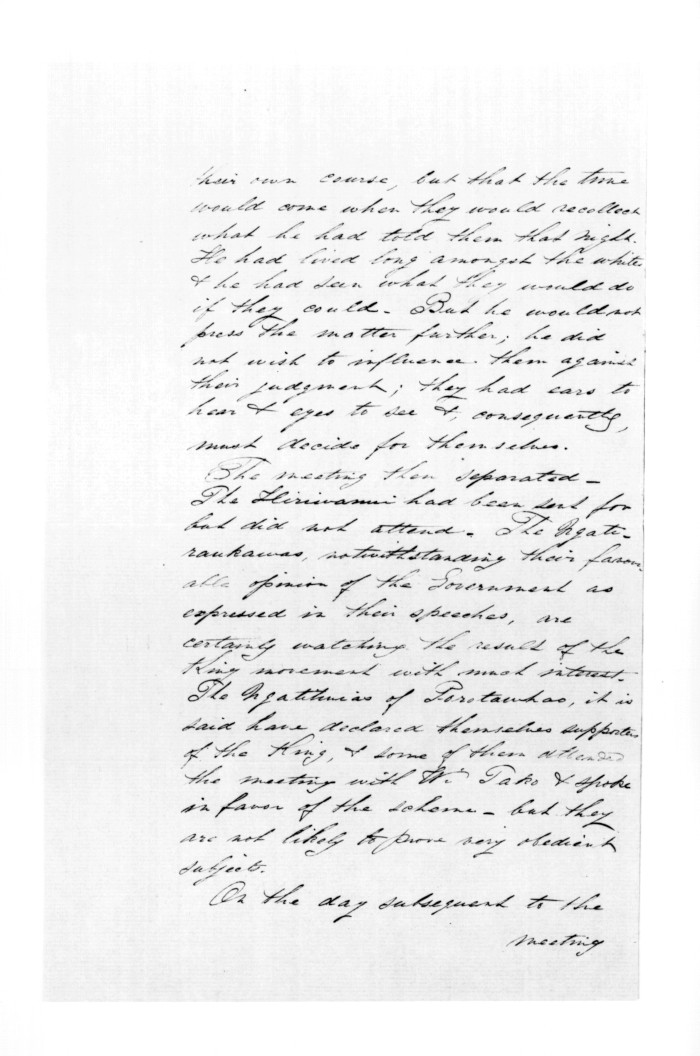 their own course, but that the time
would come when they would recollect
what he had told them that night.
He had lived long amongst the whites
& he had seen what they would do
if they could - But he would not
press the matter further; he did
not wish to influence them against
their judgment; they had ears to
hear & eyes to see &, consequently,
must decide for themselves.
The meeting then separated -
The Hiriwanui had been sent for
but did not attend - The Ngati-
raukawas, notwithstanding their favor-
able opinion of the Government as
expressed in their speeches, are
certainly watching the result of the
King movement with much interest.
The Ngatihuias of Porotawhao, it is
said have declared themselves supporters
of the King, & some of them attended
the meeting with Wi Tako & spoke
in favor of the scheme - but they
are not likely to prove very obedient
subjects.
On the day subsequent to the
meeting